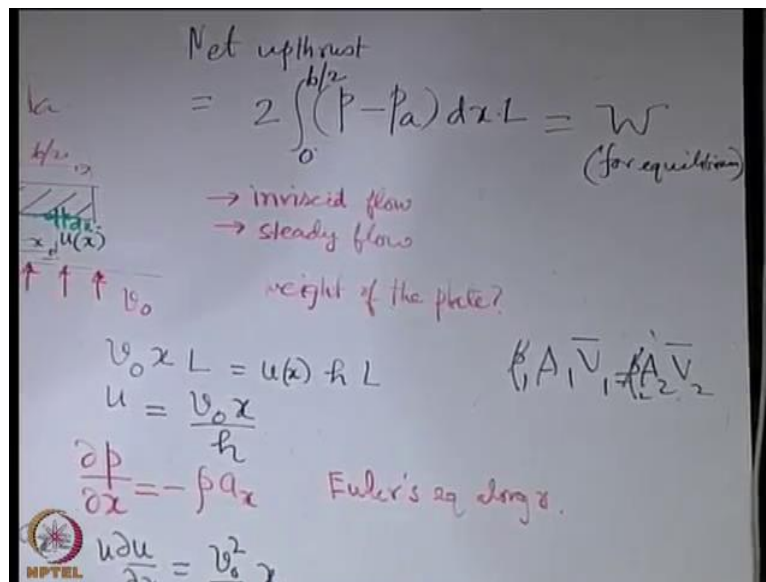 Net upthrust
= 2 ∫₀^{b/2} (p - pa) dx. L = W
(for equilibrium)
b/2
→ inviscid flow
→ steady flow
dx
x u(x)
v₀
weight of the plate?
v₀ x L = u(x) h L
ρ₁A₁V̄₁ = ρ₂A₂V̄₂
u = v₀ x / h
∂p/∂x = - ρ aₓ Euler's eq along x.
u ∂u = v₀² x
NPTEL